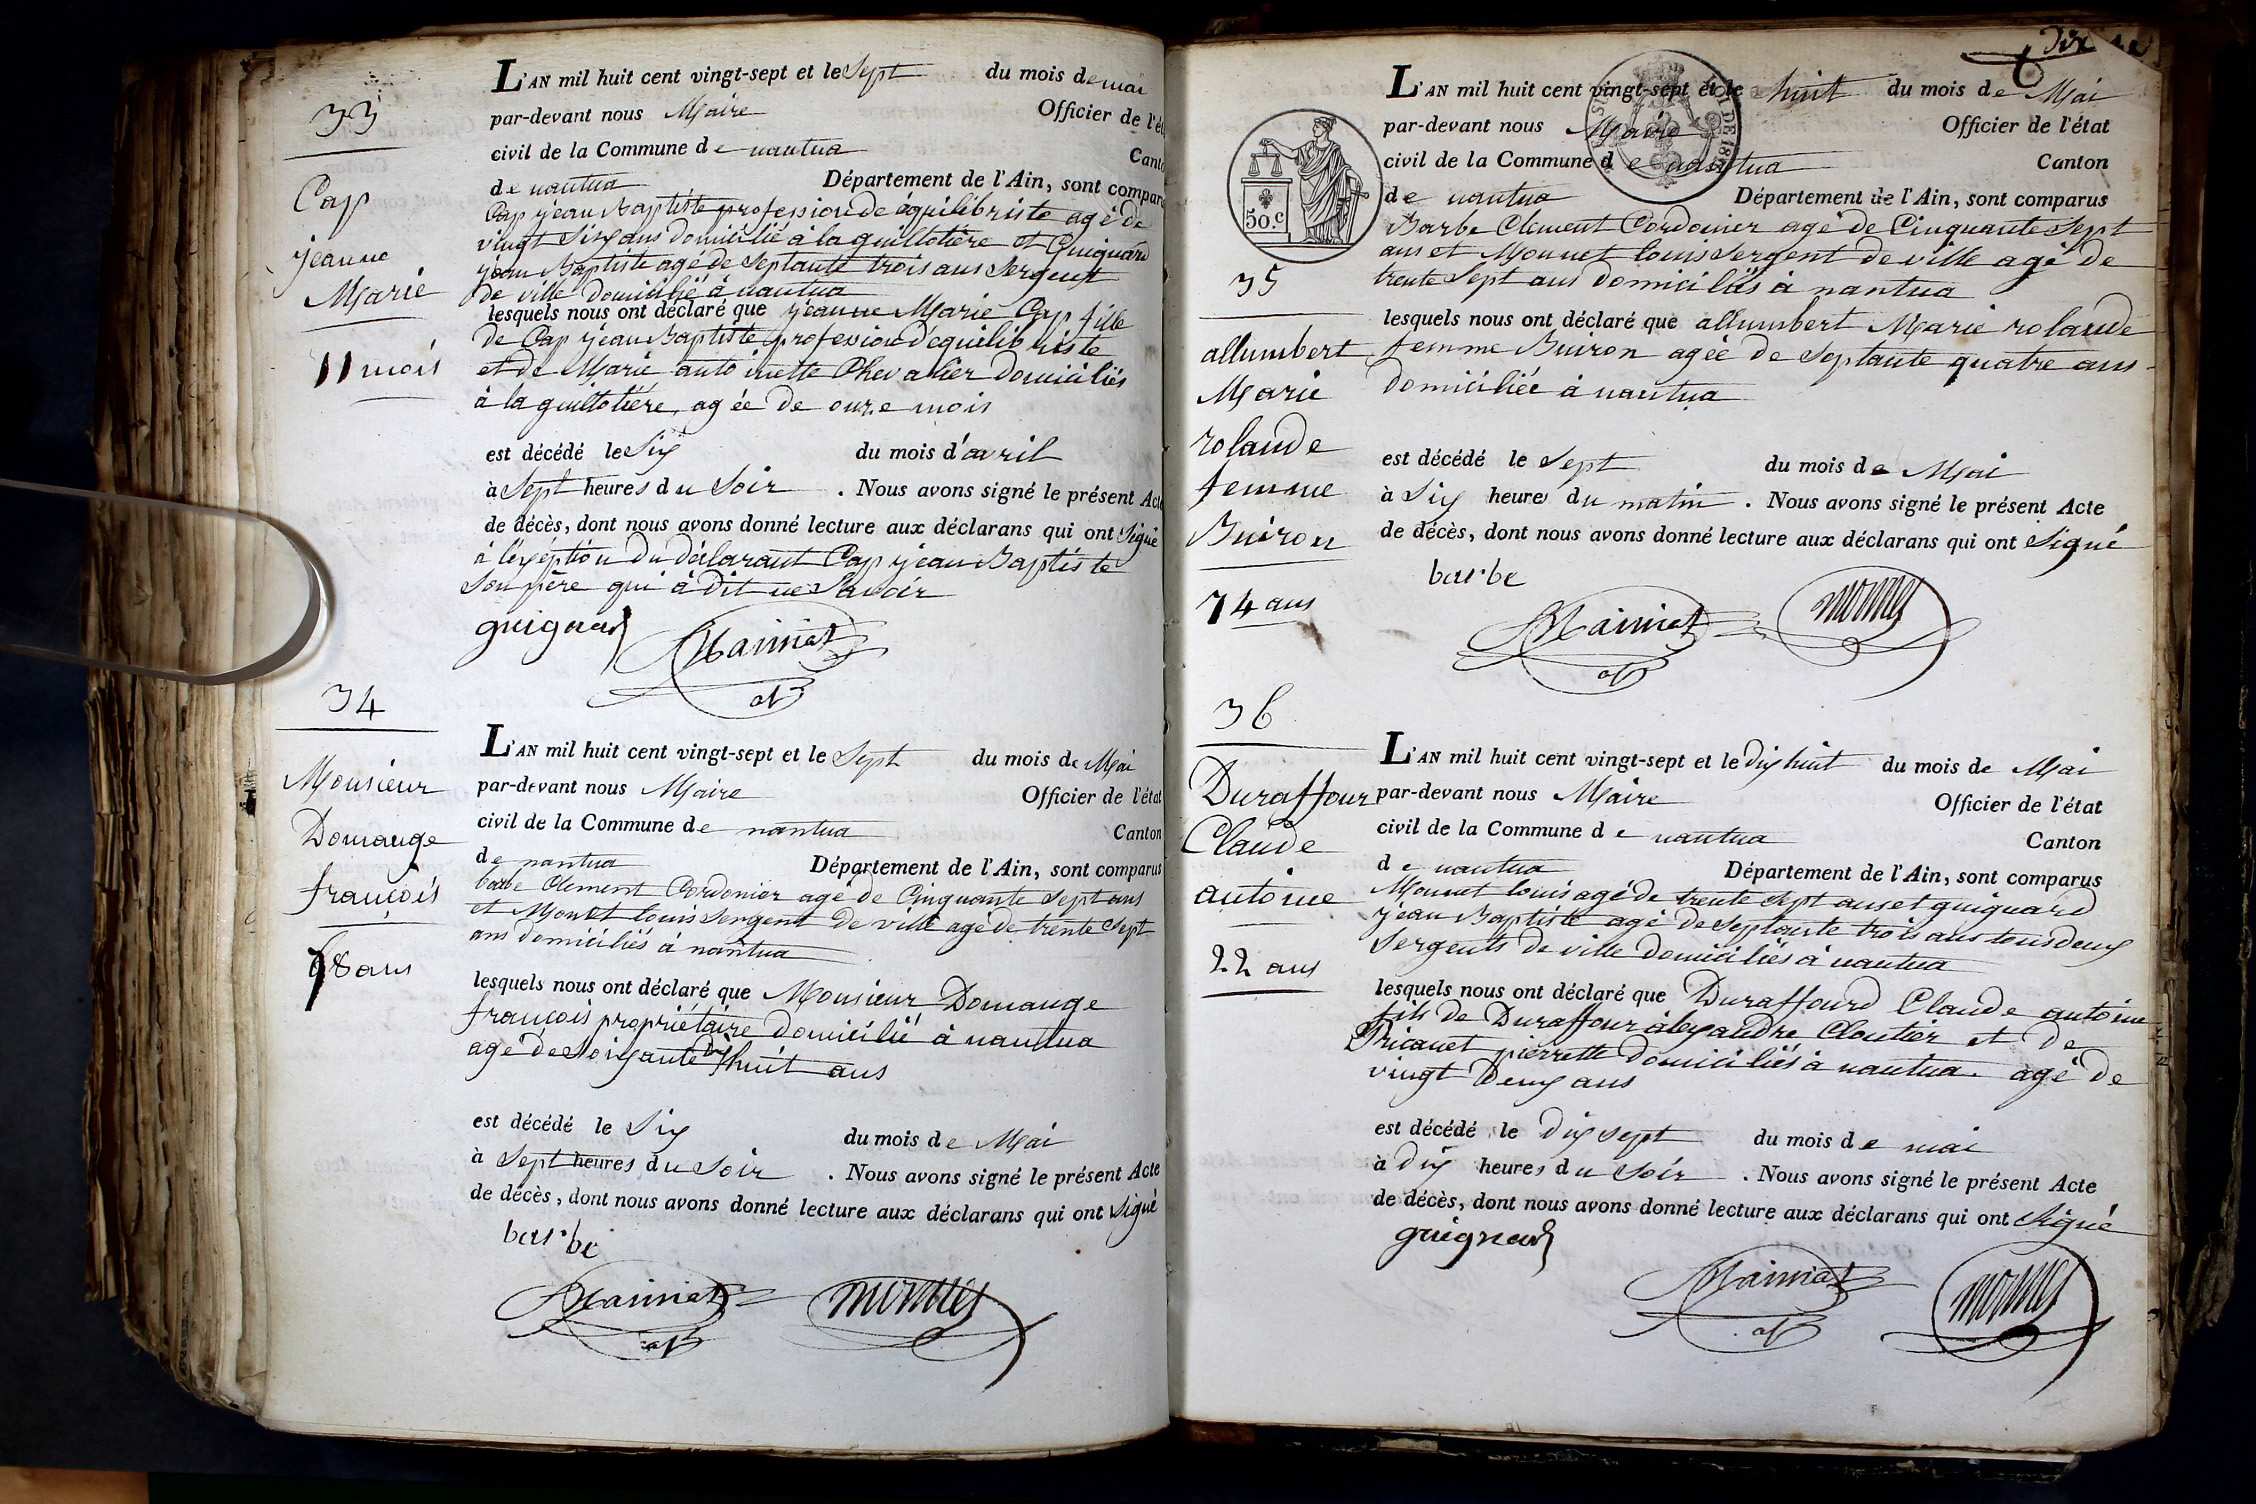 33
Cap
jeanne
Marie
11 mois
L'AN mil huit cent vingt-sept et le Sept du mois de mai
par-devant nous Maire Officier de l'ét
civil de la Commune de nantua Canto
de nantua Département de l'Ain, sont compar
Cap jean Baptiste profession de équilibriste agé de
vingt Six ans domicilié à la guillotière et Guignard
jean Baptiste agé de Septante trois ans Sergent
de ville domicilié à nantua
lesquels nous ont déclaré que jeanne Marie Cap fille
de Cap jean Baptiste profession d'equilibriste
et de Marie antoinette Chevalier domiciliés
à la guillotière, agée de onze mois
est décédé le Six du mois d'avril
à Sept heures du Soir . Nous avons signé le présent Acte
de décès, dont nous avons donné lecture aux déclarans qui ont Signé
à l'exéption du déclarant Cap jean Baptiste
Son père qui à dit ne Savoir
guignard
34
Monsieur
Domange
françois
78 ans
L'AN mil huit cent vingt-sept et le Sept du mois de Mai
par-devant nous Maire Officier de l'état
civil de la Commune de nantua Canton
de nantua Département de l'Ain, sont comparus
barbe Clement Cordonier agé de Cinquante Sept ans
et Monet louis Sergent de ville agé de trente Sept
ans domiciliés à nantua
lesquels nous ont déclaré que Monsieur Domange
françois propriétaire domicilié à nantua
agé de Soixante dix huit ans
est décédé le Six du mois de Mai
à Sept heures du Soir . Nous avons signé le présent Acte
de décès, dont nous avons donné lecture aux déclarans qui ont Signé
barbe
35
allumbert
Marie
rolande
femme
Buiron
74 ans
50 c
L'AN mil huit cent vingt-sept et le huit du mois de Mai
par-devant nous Maire Officier de l'état
civil de la Commune de nantua Canton
de nantua Département de l'Ain, sont comparus
Barbe Clement Cordonier agé de Cinquante Sept
ans et Monnet louis Sergent de ville agé de
trente Sept ans domiciliés à nantua
lesquels nous ont déclaré que allumbert Marie rolande
femme Buiron agée de Septante quatre ans
domiciliée à nantua
est décédé le Sept du mois de Mai
à Six heures du matin . Nous avons signé le présent Acte
de décès, dont nous avons donné lecture aux déclarans qui ont Signé
barbe
36
Duraffour
Claude
antoine
22 ans
L'AN mil huit cent vingt-sept et le dix huit du mois de Mai
par-devant nous Maire Officier de l'état
civil de la Commune de nantua Canton
de nantua Département de l'Ain, sont comparus
Monnet louis agé de trente Sept ans et guignard
jean Baptiste agé de Septante trois ans tous deux
Sergents de ville domiciliés à nantua
lesquels nous ont déclaré que Duraffourd Claude antoine
fils de Duraffour alexandre Cloutier et de
Pricanet pierrette domiciliés à nantua. agé de
vingt deux ans
est décédé le dix sept du mois de mai
à dix heures du Soir . Nous avons signé le présent Acte
de décès, dont nous avons donné lecture aux déclarans qui ont Signé
guignard